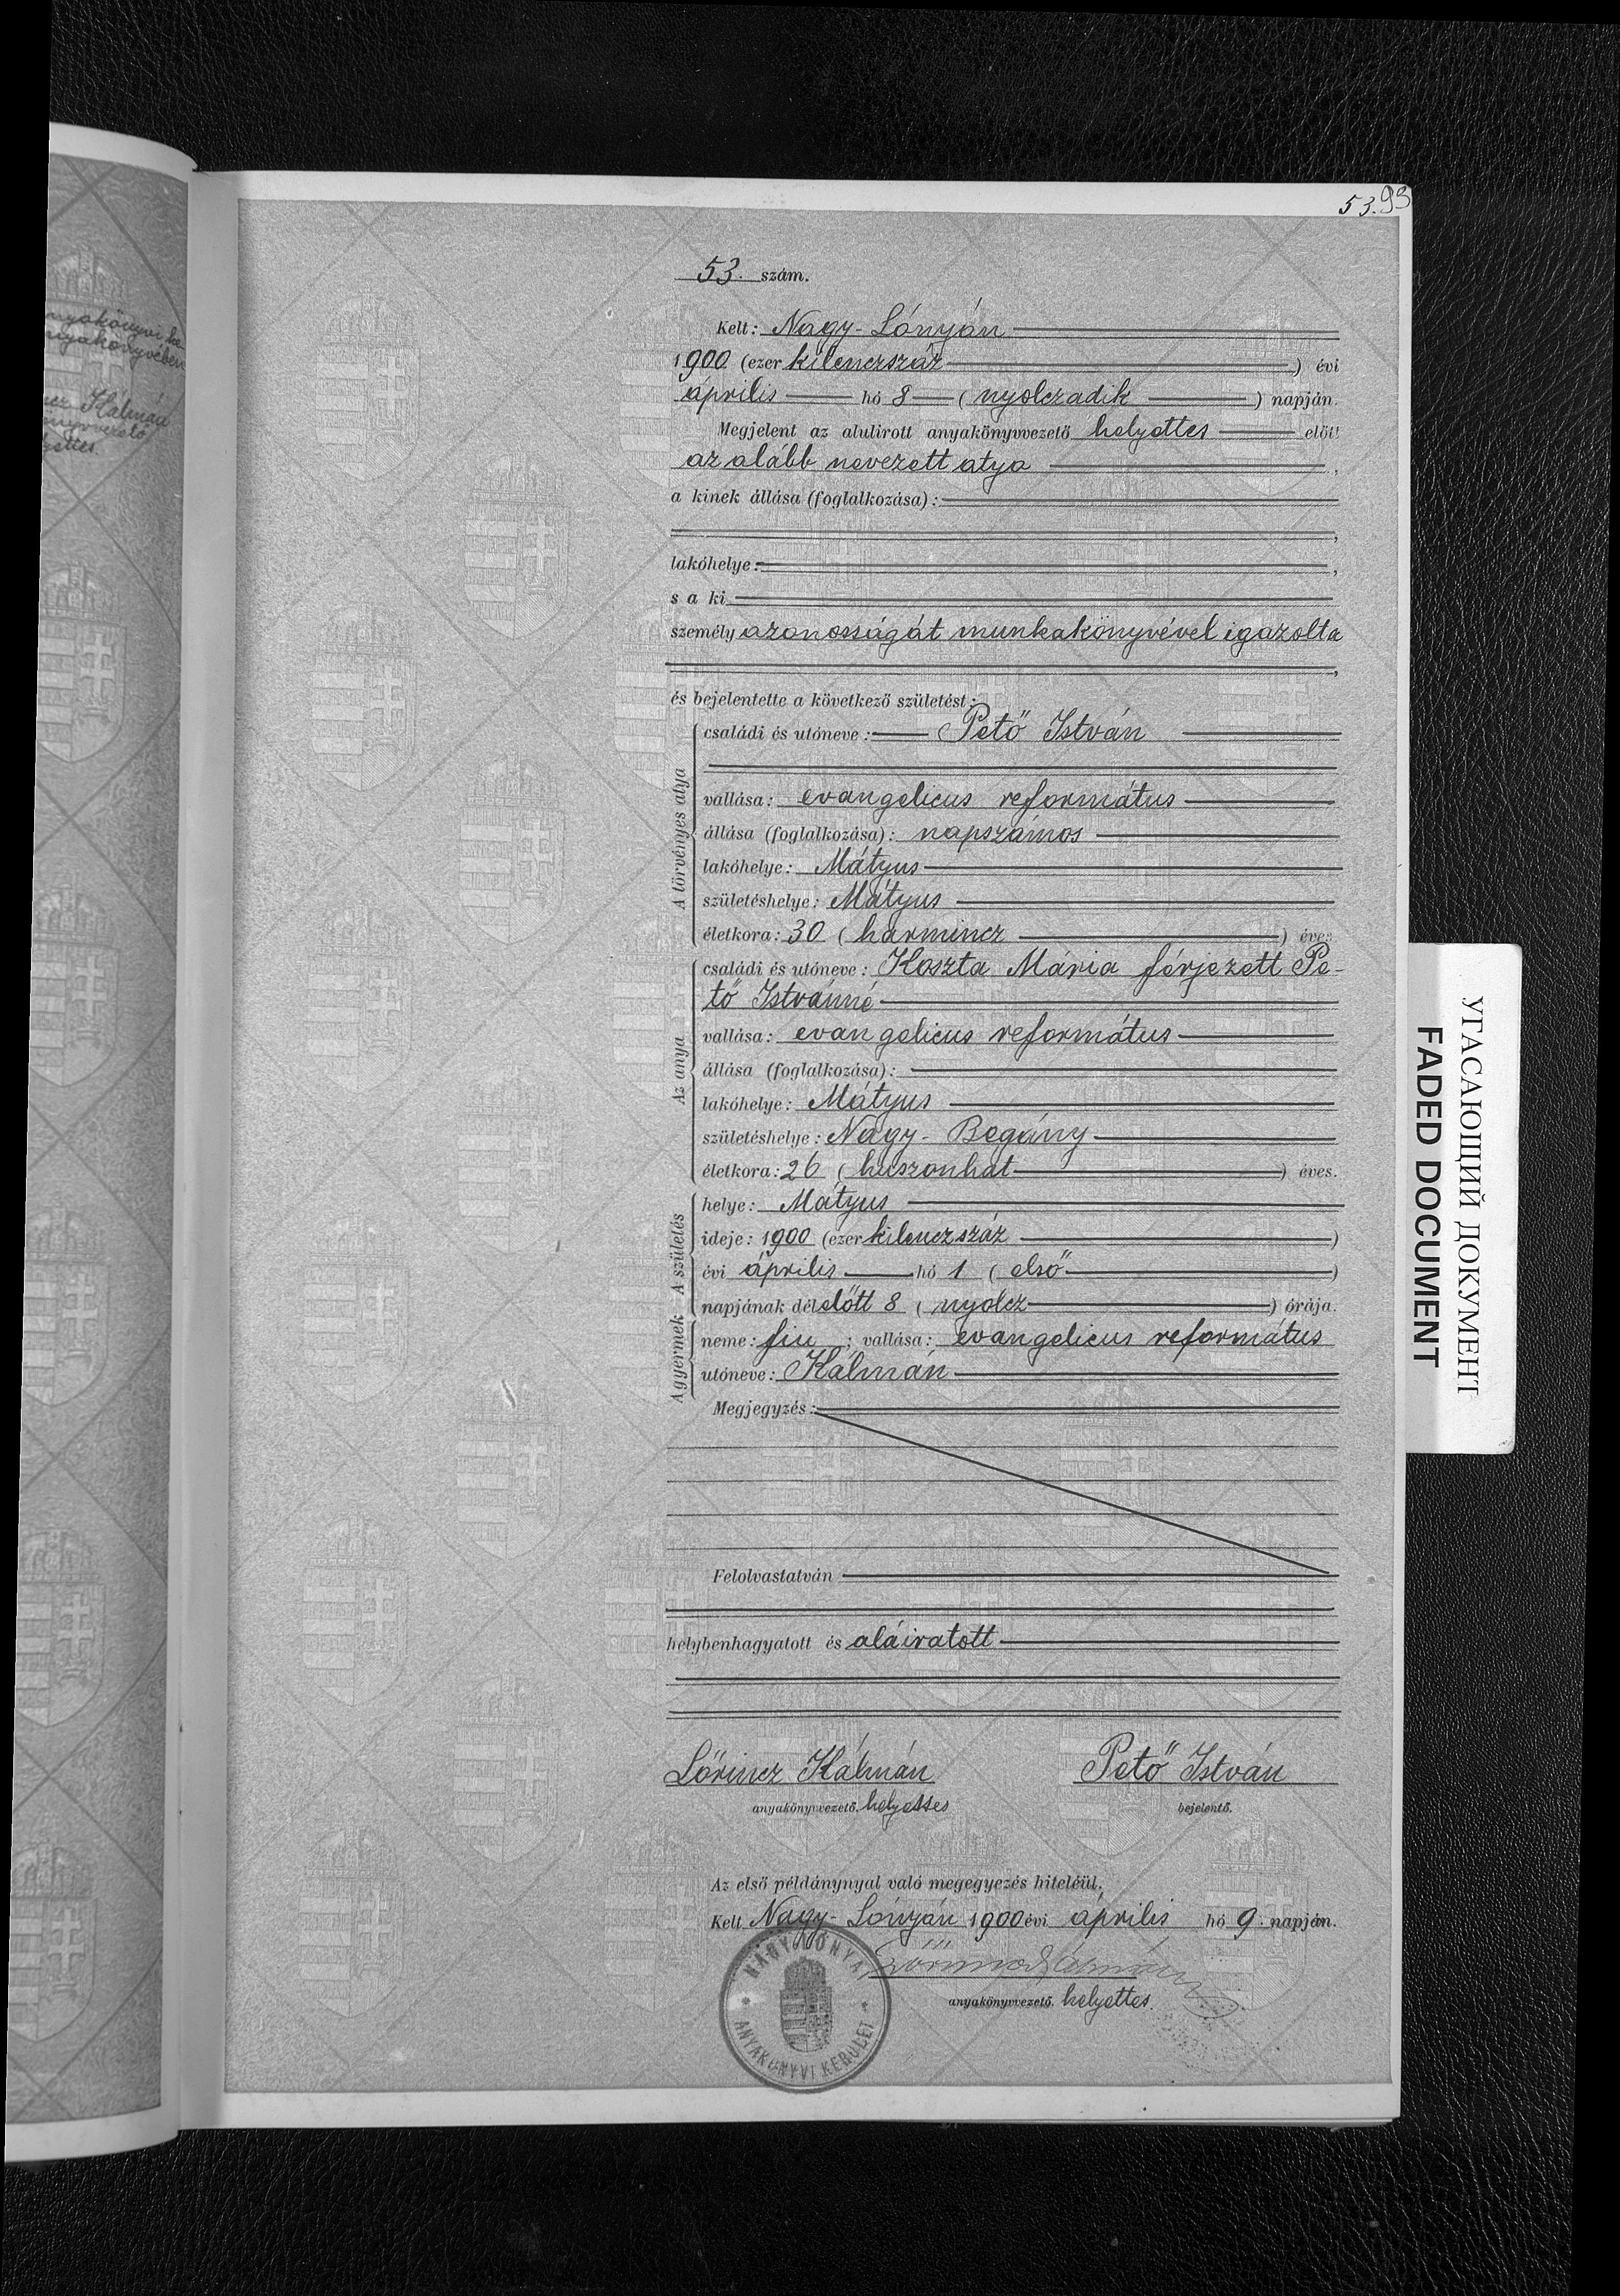 53.93
53. szám.
Kelt: Nagy-Lónyán
1900 (ezer kilenczszáz) évi
április hó 8 (nyolczadik) napján.
Megjelent az alulirott anyakönyvvezető helyettes előtt
az alább nevezett atya,
a kinek állása (foglalkozása):
,
lakóhelye: ,
s a ki
személy azonosságát munkakönyvével igazolta
,
és bejelentette a következő születést:
A törvényes atya
családi és utóneve: Pető István
vallása: evangelicus református
állása (foglalkozása): napszámos
lakóhelye: Mátyus
születéshelye: Mátyus
életkora: 30 (harmincz) éves
Az anya
családi és utóneve: Koszta Mária férjezett Pe-
tő Istvánné
vallása: evangelicus református
állása (foglalkozása):
lakóhelye: Mátyus
születéshelye: Nagy-Begány
életkora: 26 (huszonhat) éves.
A születés
helye: Mátyus
ideje: 1900 (ezer kilenczszáz)
évi április hó 1 (első)
napjának délelőtt 8 (nyolcz) órája.
A gyermek
neme: fiu; vallása: evangelicus református
utóneve: Kálmán
Megjegyzés:
Felolvastatván
helybenhagyatott és aláiratott
Lőrincz Kálmán Pető István
anyakönyvvezető. helyettes bejelentő.
Az első példánynyal való megegyezés hiteléül.
Kelt Nagy-Lónyán 1900 évi április hó 9. napján.
Lőrincz Kálmán
anyakönyvvezető. helyettes.
NAGYLÓNYAI
ANYAKÖNYVI KERÜLET
УГАСАЮЩИЙ ДОКУМЕНТ
FADED DOCUMENT
anyakönyvi ke
anyakönyvében
Kálmán